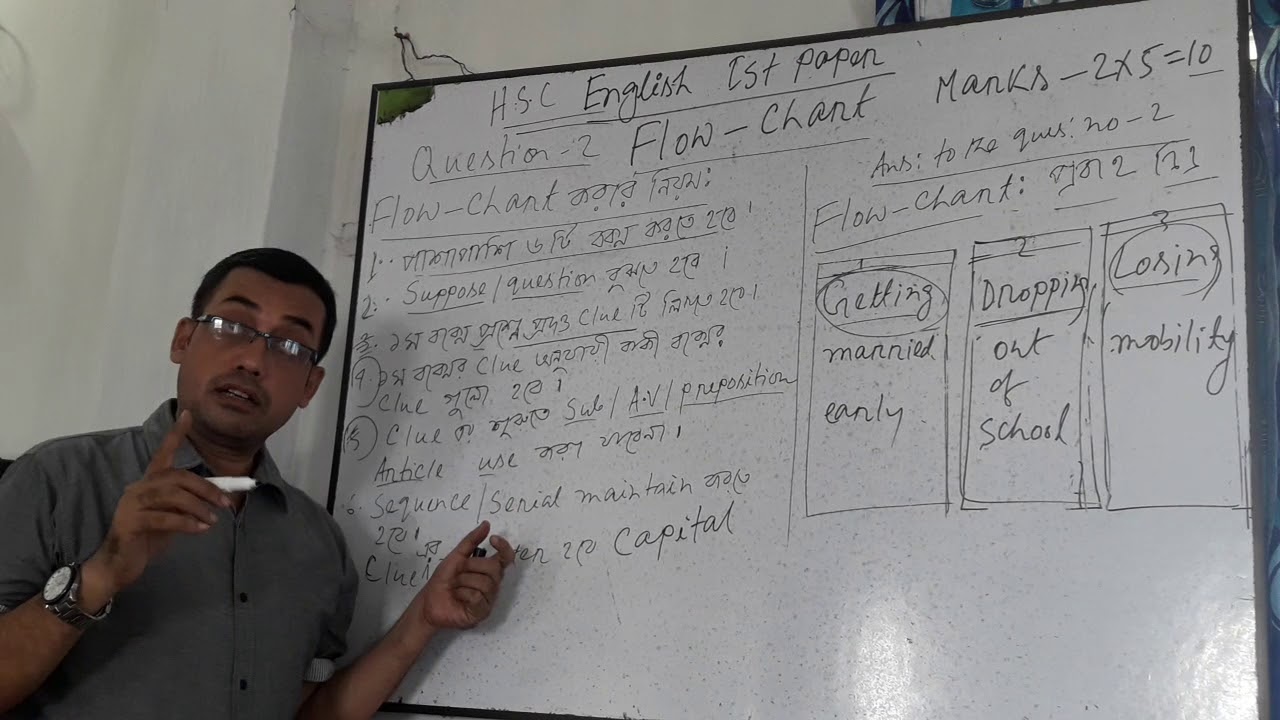 H.S.C English Ist Paper
Marks - 2x5=10
Question-2 Flow-Chart
Flow-Chart করার নিয়ম:
1. পাশাপাশি ৬ টি বক্স করতে হবে।
2. Suppose/question বুঝতে হবে।
৩. ১ম বক্সে প্রশ্নে প্রদত্ত Clue টি লিখতে হবে।
১ম বক্সের Clue অনুযায়ী বাকী বক্সের
Clue গুলো হবে।
Clue এর শুরুতে Sub/A.V/preposition
Article use করা যাবেনা।
৬. Sequence/Serial maintain করতে
হবে।
Clue এর হবে Capital
Ans: to the ques: no-2
Flow-Chart:
1
Getting
married
early
2
Dropping
out
of
school
3
Losing
mobility